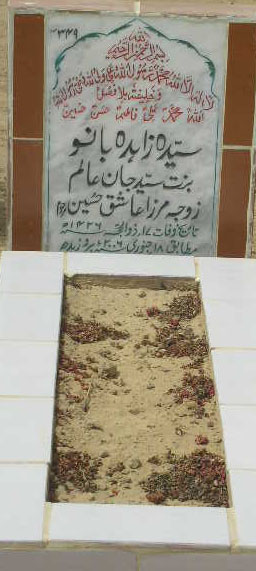 ۳۴۹
بسم اللہ الرحمن الرحیم
لا الہ الا اللہ محمد رسول اللہ علی ولی اللہ وصی رسول اللہ
و خلیفتہ بلا فصل
اللہ محمد علی فاطمہ حسن حسین
سیدہ زاہدہ بانو
بنت سید جان عالم
زوجہ مرزا عاشق حسین
تاریخ وفات ۱۷ ذوالحجہ ۱۴۲۶ھ
مطابق ۱۸ جنوری ۲۰۰۶ء بروز بدھ